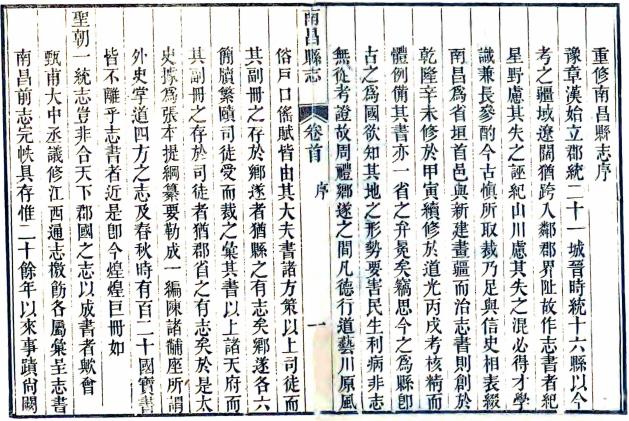 重修南昌縣志序
豫章漢始立郡統二十一城晉時統十六縣以今
考之疆域遼闊猶跨入鄰郡界阯故作志書者紀
星野慮其失之誣紀山川慮其失之混必得才學
識兼長參酌今古慎所取裁乃足與信史相表綴
南昌爲省垣首邑與新建畫疆而治志書則創於
乾隆辛未修於甲寅續修於道光丙戌考核精而
體例備其書亦一省之弁冕矣竊思今之爲縣卽
古之爲國欲知其地之形勢要害民生利病非志
無從考證故周禮鄉遂之間凡德行道藝川原風
南昌縣志
卷首
序
一
俗戶口傜賦皆由其大夫書諸方策以上司徒而
其副冊之存於鄉遂者猶縣之有志矣鄉遂各六
簡牘繁賾司徒受而裁之彙其書以上諸天府而
其副冊之存於司徒者猶郡省之有志矣於是太
史據爲張本提綱纂要勒成一編陳諸黼座所謂
外史掌道四方之志及春秋時有百二十國寶書
皆不離乎志書者近是卽今煌煌巨冊如
聖朝一統志豈非合天下郡國之志以成書者歟會
甄甫大中丞議修江西通志檄飭各屬彙呈志書
南昌前志完帙具存惟二十餘年以來事蹟尙闕